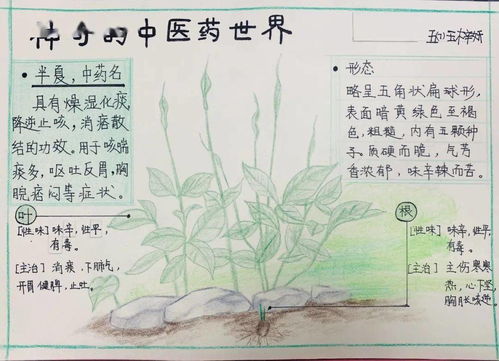 神奇的中医药世界
半夏,中药名
具有燥湿化痰,
降逆止咳,消痞散
结的功效。用于咳喘
痰多,呕吐反胃,胸
脘痞闷等症状。
形态
略呈五角状扁球形,
表面暗黄绿色至褐
色,粗糙,内有五颗种
子。质硬而脆,气芳
香浓郁,味辛辣而苦。
叶
[性味]味辛,性平,
有毒。
[主治]消痰,下肺气,
开胃健脾,止吐。
根
[性味]味辛,性平,
有毒。
[主治]主伤寒寒
热,心下坚,
胸胀咳逆。